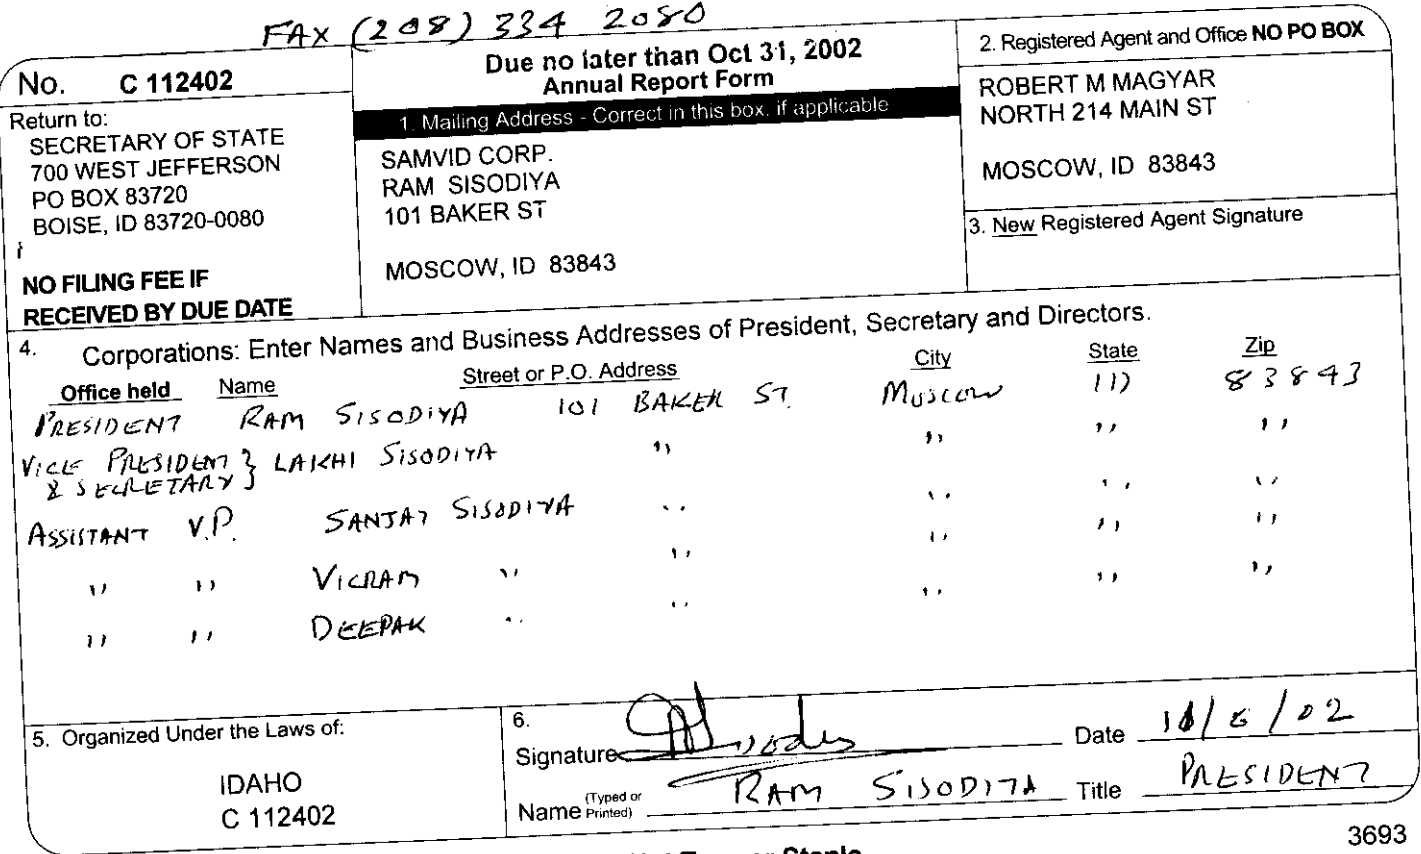 FAX (208) 334 2080
No. C 112402
Return to:
SECRETARY OF STATE
700 WEST JEFFERSON
PO BOX 83720
BOISE, ID 83720-0080
NO FILING FEE IF
RECEIVED BY DUE DATE
Due no later than Oct 31, 2002
Annual Report Form
1. Mailing Address - Correct in this box, if applicable
SAMVID CORP.
RAM SISODIYA
101 BAKER ST
MOSCOW, ID 83843
2. Registered Agent and Office NO PO BOX
ROBERT M MAGYAR
NORTH 214 MAIN ST
MOSCOW, ID 83843
3. New Registered Agent Signature
4. Corporations: Enter Names and Business Addresses of President, Secretary and Directors.
Office held Name Street or P.O. Address City State Zip
PRESIDENT RAM SISODIYA 101 BAKER ST. MOSCOW ID 83843
VICE PRESIDENT } LAKHI SISODIYA " " " "
& SECRETARY }
ASSISTANT V.P. SANJAY SISODIYA " " " "
" " VICRAM " " " " "
" " DEEPAK " " " " "
5. Organized Under the Laws of:
IDAHO
C 112402
6.
Signature Sisodiya Date /02
Name (Typed or Printed) RAM SISODIYA Title PRESIDENT
3693